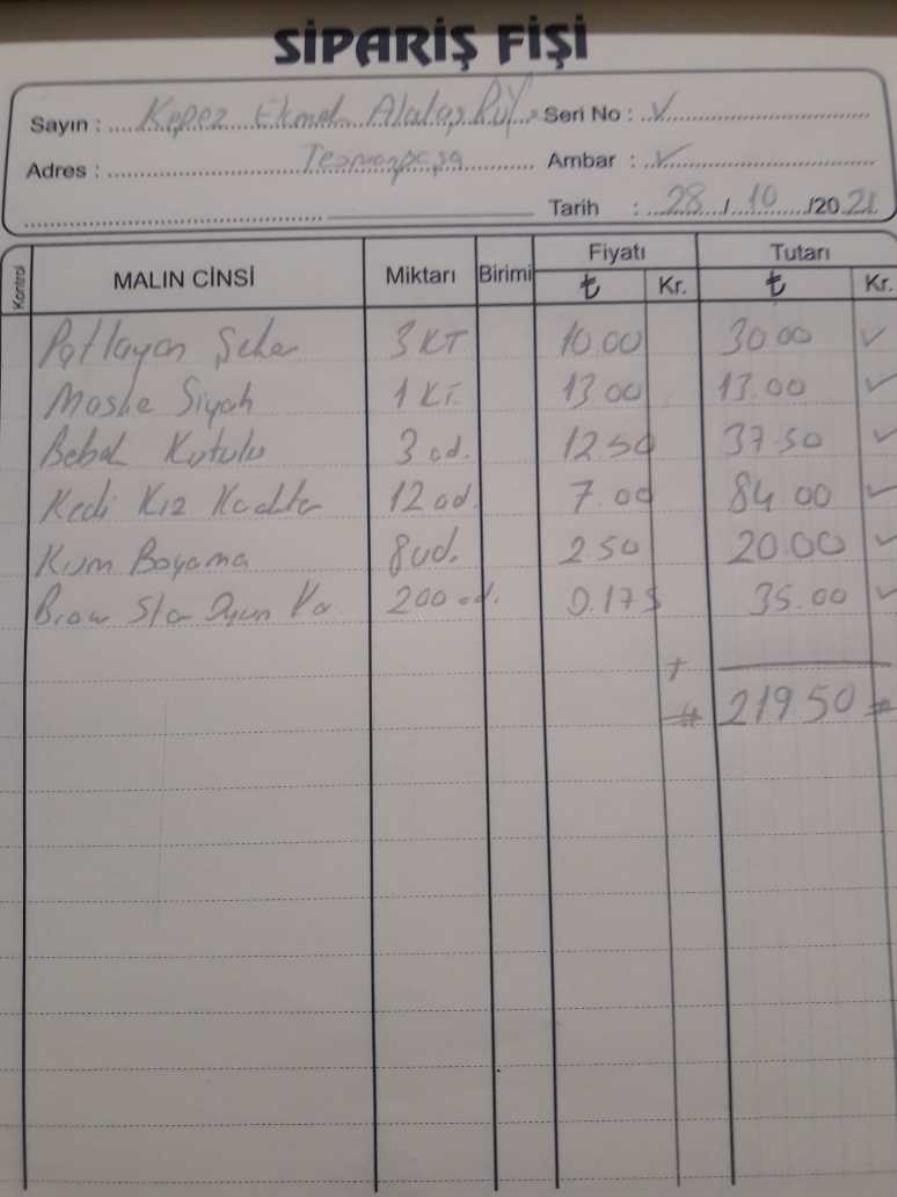 SİPARİŞ FİŞİ
Sayın : Kepez Ekmek Seri No :
Adres : Ambar :
Tarih : 28 / 10 /2021
Kontrol MALIN CİNSİ Miktarı Birimi Fiyatı Tutarı
₺ Kr. ₺ Kr.
Patlayan Şeker 3 KT 10.00 30.00
Maske Siyah 1 KT. 13 00 13.00
Bebek Kutulu 3 ad. 12.50 37.50
Kedi Kız 12 ad. 7.00 84 00
Kum Boyama 8 ad. 2 50 20.00
Braw Star Oyun Ka 200 ad. 0.175 35.00
+
# 219 50 #